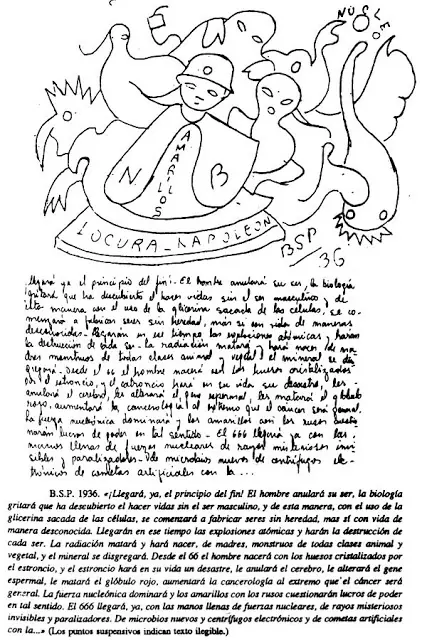 NUCLEO
AMARILLOS
N B
LOCURA - NAPOLEON
BSP
36
¡llegará ya el principio del fin!. El hombre anulará su ser, la biología
gritará que ha descubierto el hacer vidas sin el ser masculino, y de
esta manera con el uso de la glicerina sacada de las células, se co-
menzará a fabricar seres sin heredad, más si con vida de maneras
desconocidas. Llegarán en ese tiempo las explosiones atómicas y harán
la destrucción de cada ser. La radiación matará y hará nacer de ma-
dres monstruos de todas clases animal y vegetal y el mineral se dis-
gregará. Desde el 66 el hombre nacerá con los huesos cristalizados
por el estroncio, y el estroncio hará en su vida un desastre, le
anulará el cerebro, le alterará el gene espermal, le matará el glóbulo
rojo, aumentará la cancerología al extremo que el cáncer será general.
La fuerza nucleónica dominará y los amarillos con los rusos cuestio-
narán lucros de poder en tal sentido. El 666 llegará ya con las
manos llenas de fuerzas nucleares de rayos misteriosos invi-
sibles y paralizadores. De microbios nuevos de centrífugos ele-
ctrónicos de cometas artificiales con la ...
B.S.P. 1936. «¡Llegará, ya, el principio del fin! El hombre anulará su ser, la biología
gritará que ha descubierto el hacer vidas sin el ser masculino, y de esta manera, con el uso de la
glicerina sacada de las células, se comenzará a fabricar seres sin heredad, mas sí con vida de
manera desconocida. Llegarán en ese tiempo las explosiones atómicas y harán la destrucción de
cada ser. La radiación matará y hará nacer, de madres, monstruos de todas clases animal y
vegetal, y el mineral se disgregará. Desde el 66 el hombre nacerá con los huesos cristalizados por
el estroncio, y el estroncio hará en su vida un desastre, le anulará el cerebro, le alterará el gene
espermal, le matará el glóbulo rojo, aumentará la cancerología al extremo que el cáncer será
general. La fuerza nucleónica dominará y los amarillos con los rusos cuestionarán lucros de poder
en tal sentido. El 666 llegará, ya, con las manos llenas de fuerzas nucleares, de rayos misteriosos
invisibles y paralizadores. De microbios nuevos y centrífugos electrónicos y de cometas artificiales
con la...» (Los puntos suspensivos indican texto ilegible.)